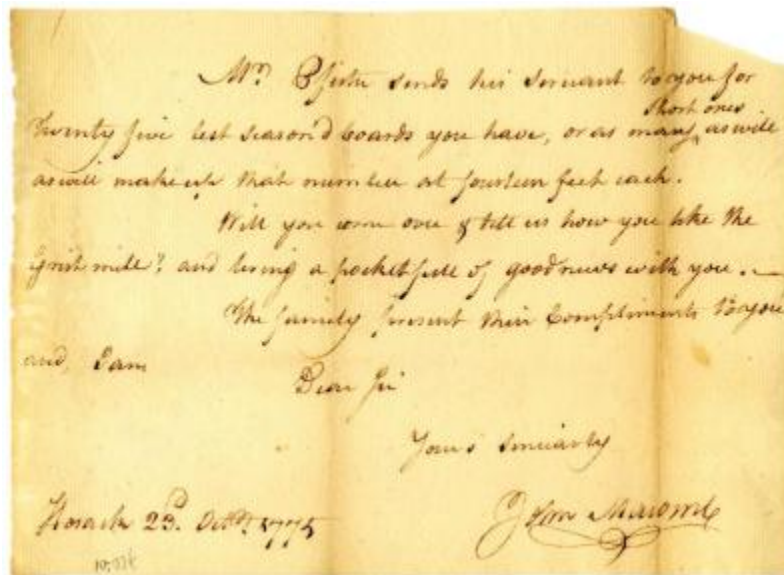 Mr. Pfister sends his Servant to you for
short ones
Twenty five best season'd boards you have, or as many as will
as will make up that number at fourteen feet each.
Will you come over & tell us how you like the
Grist mill? and bring a pocket full of good news with you. —
The family present their Compliments to you
and, I am
Dear Sir
Yours sincearly
John Macomb
Hosack 23d. Octbr. 1775